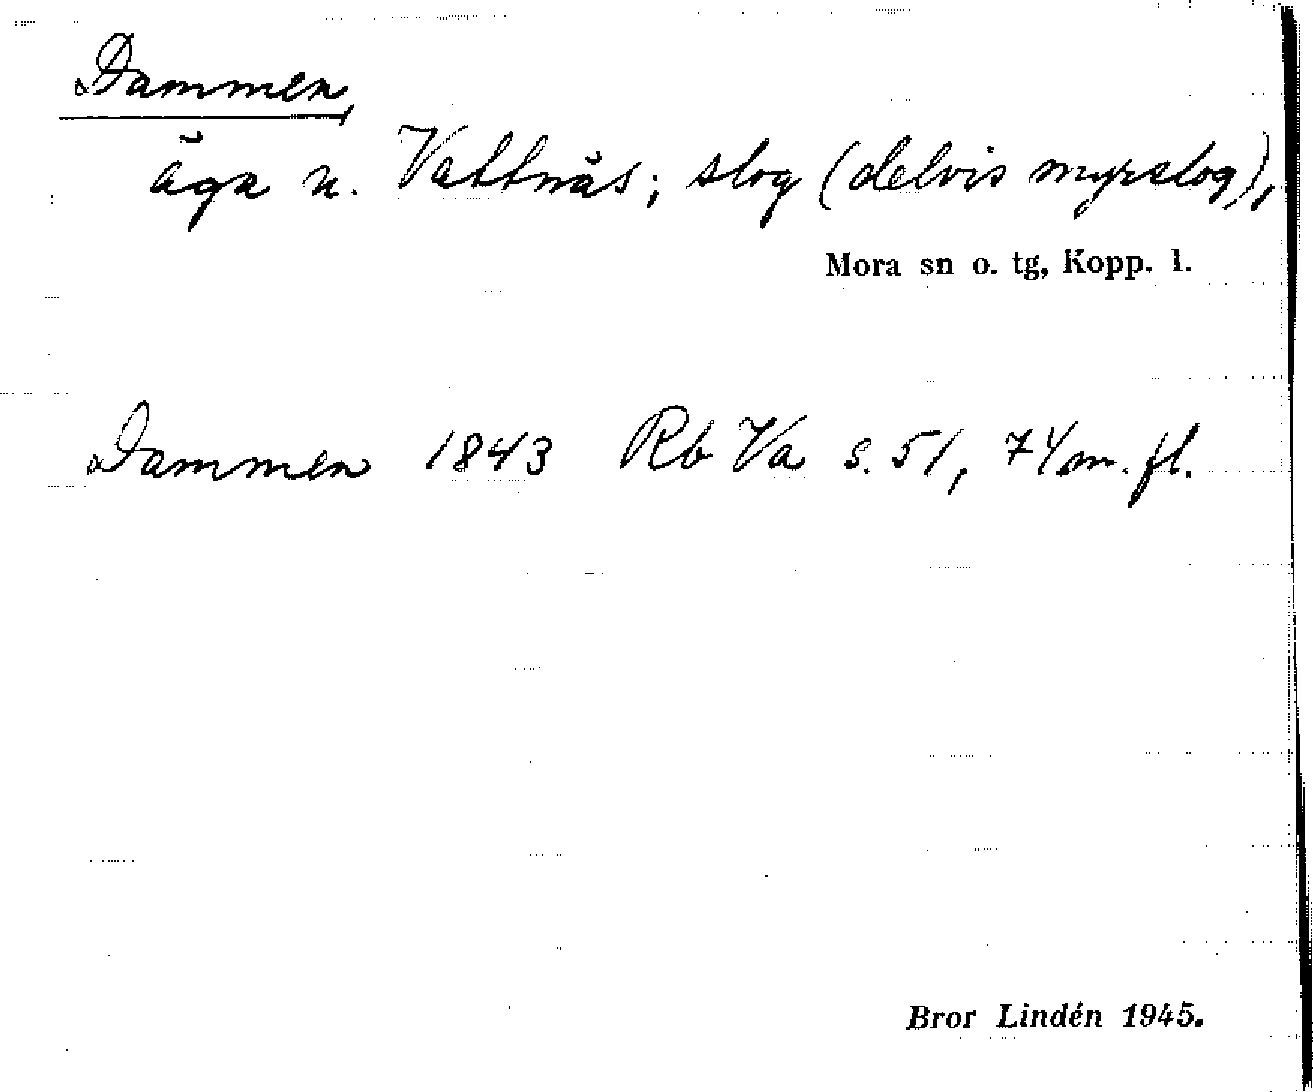 Dammen,
äga u. Vattnäs; slog (delvis myrslog),
Mora sn o. tg, Kopp. l.
Dammen 1843 Rb Va s. 51, 74 m. fl.
Bror Lindén 1945.